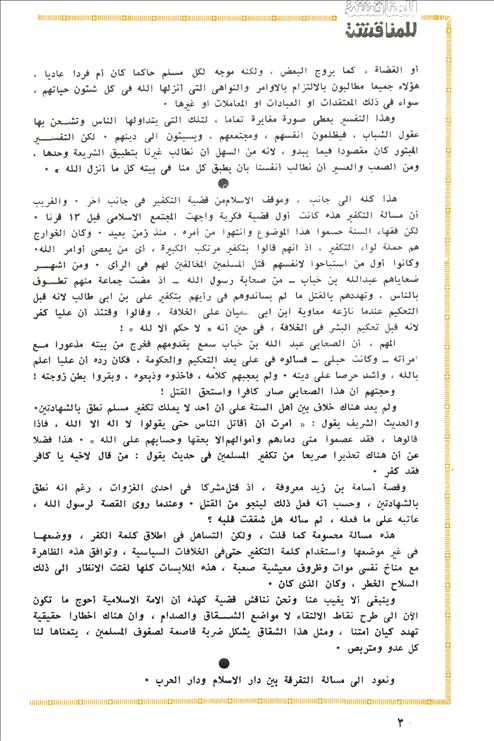 للمناقشة
أو القضاة ، كما يروج البعض ، ولكنه موجه لكل مسلم حاكما كان أم فردا عاديا ،
هؤلاء جميعا مطالبون بالالتزام بالاوامر والنواهى التى أنزلها الله فى كل شئون حياتهم ،
سواء فى ذلك المعتقدات او العبادات او المعاملات او غيرها •
وهذا التفسير يعطى صورة مغايرة تماما ، لتلك التى يتداولها الناس وتشحن بها
عقول الشباب ، فيظلمون انفسهم ، ومجتمعهم . ويسيئون الى دينهم • لكن التفسير
المبتور كان مقصودا فيما يبدو ، لانه من السهل أن نطالب غيرنا بتطبيق الشريعة وحدها ،
ومن الصعب والعسير أن نطالب أنفسنا بأن يطبق كل منا فى بيته كل ما أنزل الله » •
هذا كله الى جانب . وموقف الاسلام من قضية التكفير فى جانب اخر • والغريب
أن مسالة التكفير هذه كانت أول قضية فكرية واجهت المجتمع الاسلامى قبل ١٣ قرنا •
لكن فقهاء السنة حسموا هذا الموضوع وانتهوا من أمره ، منذ زمن بعيد • وكان الخوارج
هم حملة لواء التكفير ، اذ انهم قالوا بتكفير مرتكب الكبيرة ، أى من يعصى أوامر الله•
وكانوا أول من استباحوا لانفسهم قتل المسلمين المخالفين لهم فى الرأى • ومن اشهر
ضحاياهم عبدالله بن خباب ــ من صحابة رسول الله ــ اذ مضت جماعة منهم تطوف
بالناس . وتهددهم بالقتل ما لم يساندوهم فى رأيهم بتكفير على بن ابى طالب لانه قبل
التحكيم عندما نازعه معاوية ابن ابى سفيان على الخلافة ، وقالوا وقتئذ أن عليا كفر
لانه قبل تحكيم البشر فى الخلافة ، فى حين أنه « لا حكم الا لله » !
المهم ، أن الصحابى عبد الله بن خباب سمع بقدومهم فخرج من بيته مذعورا مع
امرأته ــ وكانت حبلى ــ فسالوه فى على بعد التحكيم والحكومة ، فكان رده أن عليا اعلم
بالله ، وأشد حرصا على دينه • ولم يعجبهم كلامه ، فأخذوه وذبحوه ، وبقروا بطن زوجته !
وحجتهم أن هذا الصحابى صار كافرا واستحق القتل !
ولم يعد هناك خلاف بين أهل السنة على أن أحد لا يملك تكفير مسلم نطق بالشهادتين•
والحديث الشريف يقول : « أمرت أن أقاتل الناس حتى يقولوا لا اله الا الله ، فاذا
قالوها ، فقد عصموا منى دماءهم وأموالهم الا بحقها وحسابهم على الله » • هذا فضلا
عن أن هناك تحذيرا صريحا من تكفير المسلمين فى حديث يقول : من قال لاخيه يا كافر
فقد كفر •
وقصة أسامة بن زيد معروفة ، اذ قتل مشركا فى احدى الغزوات ، رغم انه نطق
بالشهادتين ، وحسب أنه فعل ذلك لينجو من القتل • وعندما روى القصة لرسول الله ،
عاتبه على ما فعله ، ثم سأله هل شققت قلبه ؟
هذه مسالة محسومة كما قلت ، ولكن التساهل فى اطلاق كلمة الكفر ، ووضعها
فى غير موضعها واستخدام كلمة التكفير حتى فى الخلافات السياسية ، وتوافق هذه الظاهرة
مع مناخ نفسى موات وظروف معيشية صعبة ، هذه الملابسات كلها لفتت الانظار الى ذلك
السلاح الخطر ، وكان الذى كان •
وينبغى ألا يغيب عنا ونحن نناقش قضية كهذه أن الامة الاسلامية أحوج ما تكون
الآن الى طرح نقاط الالتقاء لا مواضع الشقاق والصدام ، وان هناك اخطارا حقيقية
تهدد كيان أمتنا ، ومثل هذا الشقاق يشكل ضربة قاصمة لصفوف المسلمين ، يتمناها لنا
كل عدو ومتربص •
ونعود الى مسالة التفرقة بين دار الاسلام ودار الحرب •
٣٠